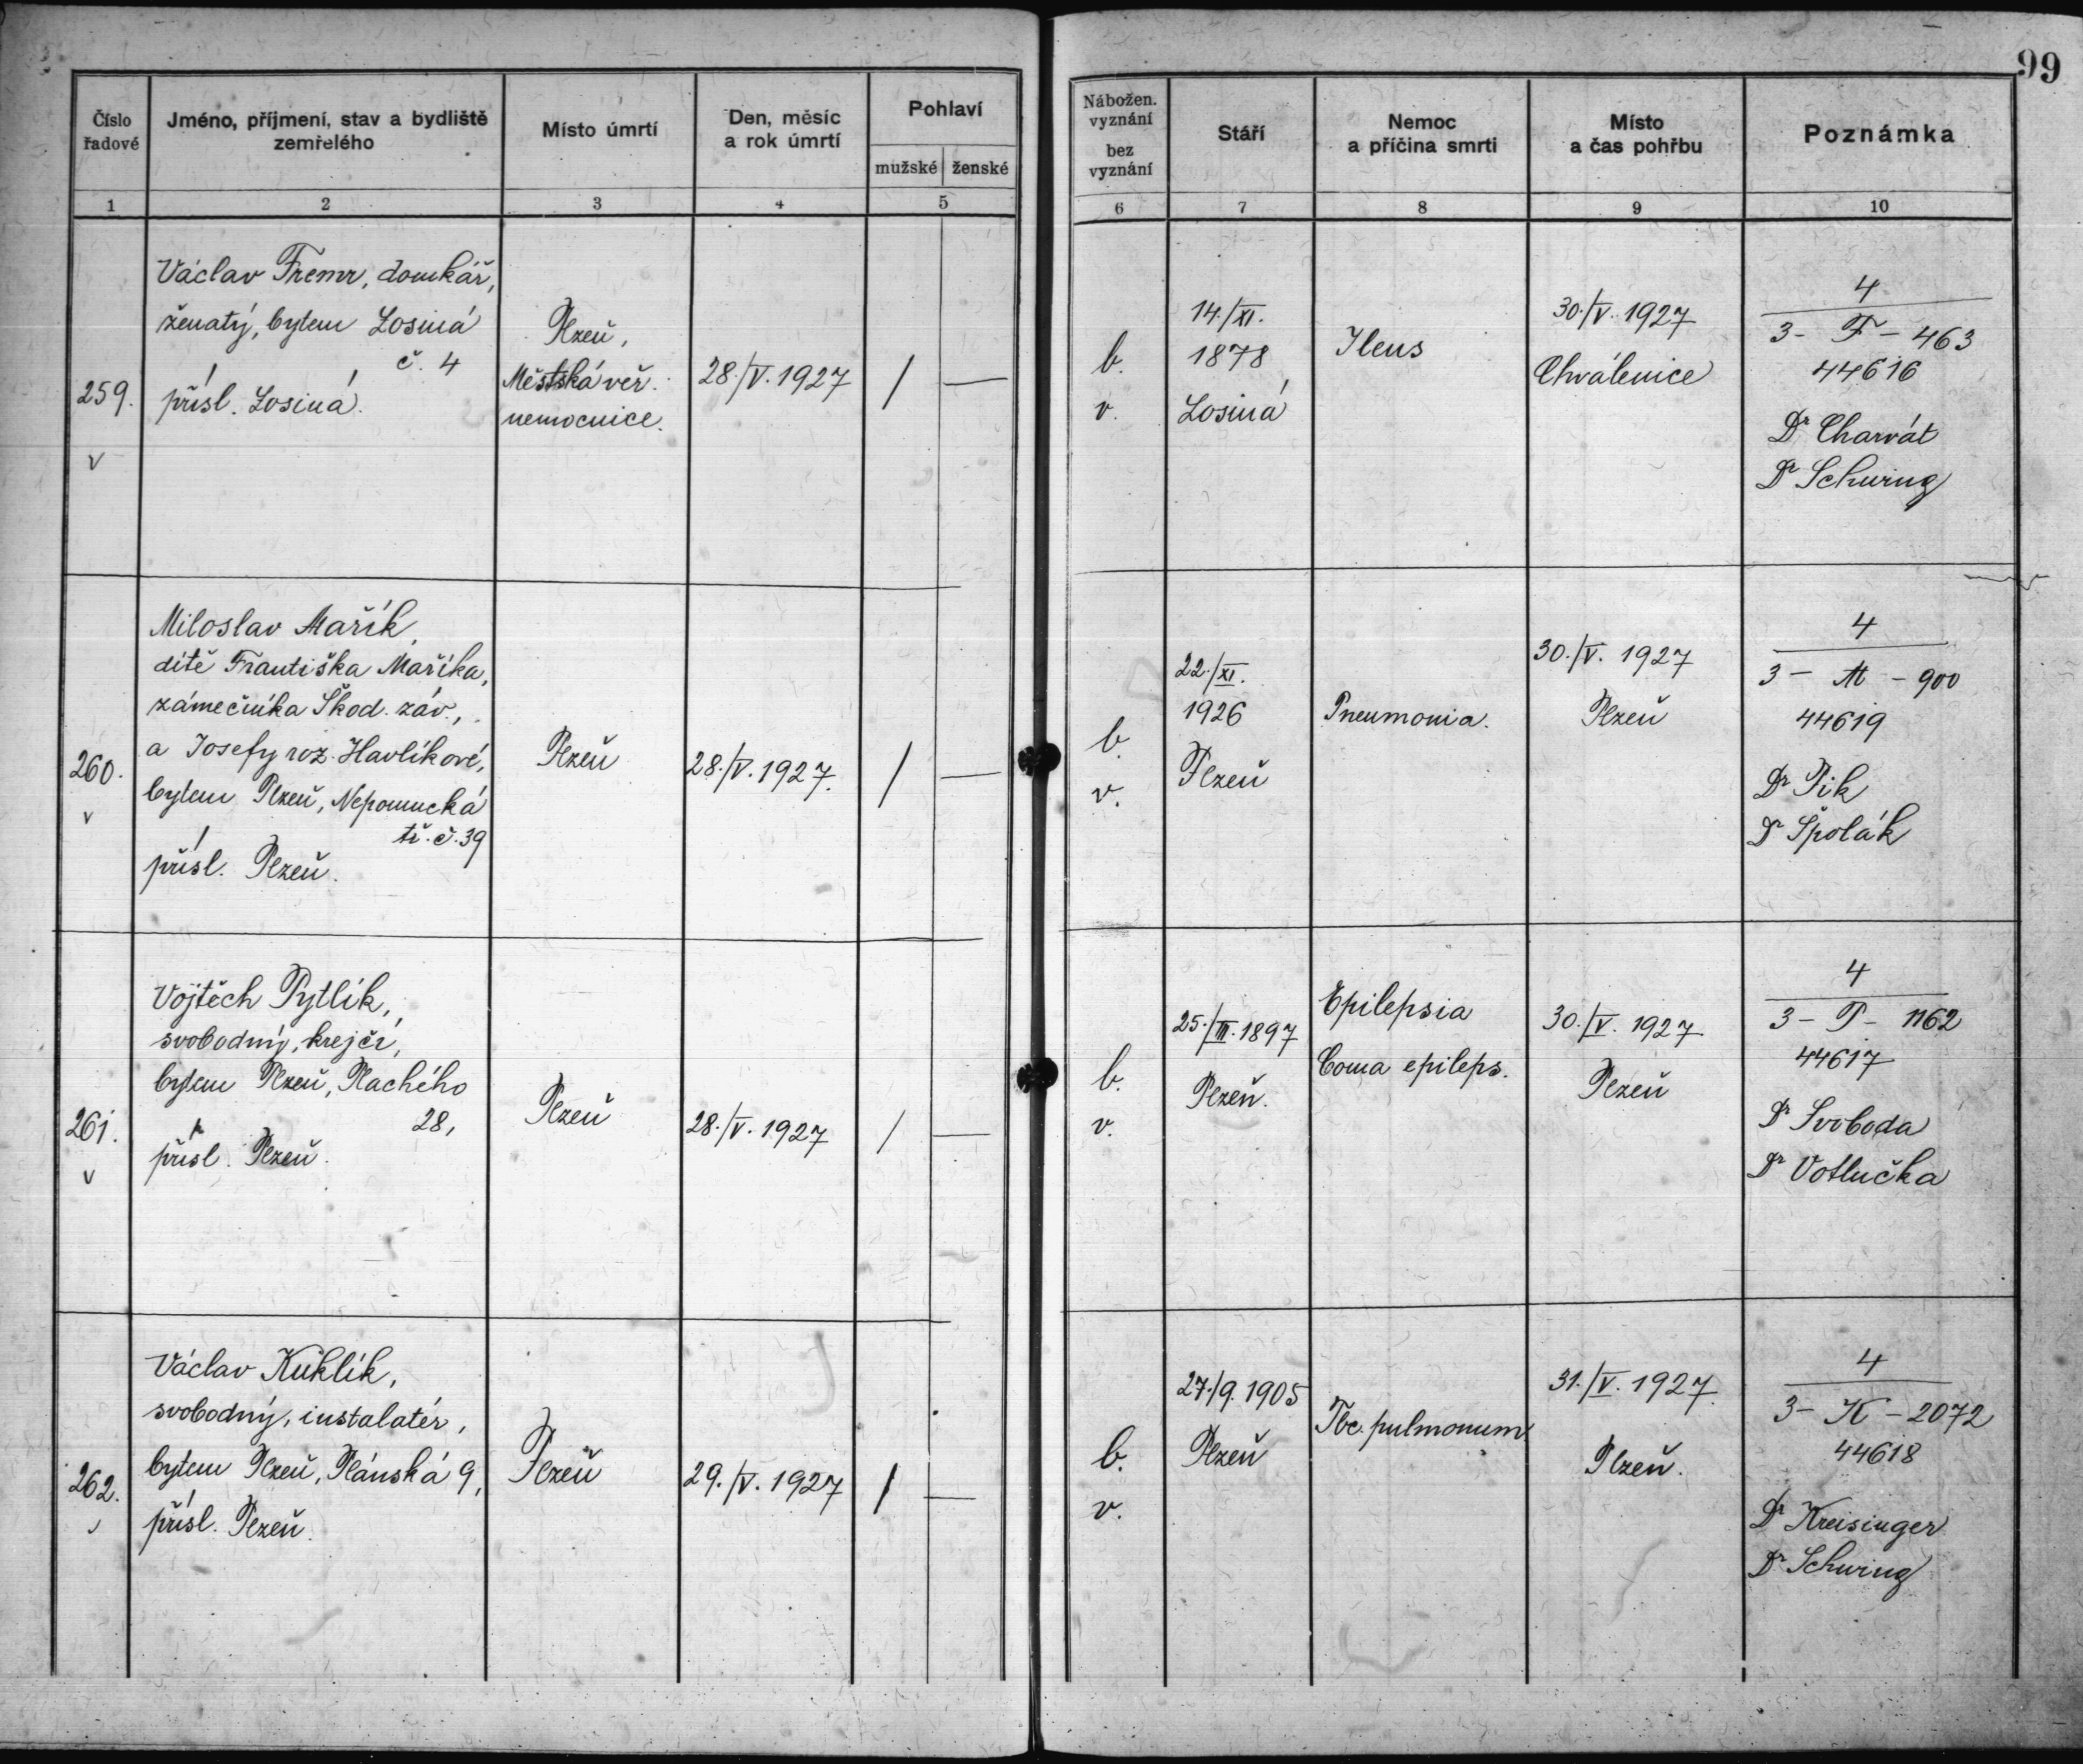 99
Číslo řadové
Jméno, příjmení, stav a bydliště zemřelého
Místo úmrtí
Den, měsíc a rok úmrtí
Pohlaví
mužské ženské
Nábožen. vyznání
bez vyznání
Stáří
Nemoc a příčina smrti
Místo a čas pohřbu
Poznámka
1 2 3 4 5 6 7 8 9 10
259.
v
Václav Fremr, domkář,
ženatý, bytem Losiná
č. 4
přísl. Losiná.
Plzeň,
Městská veř.
nemocnice.
28./V. 1927
/ —
b.
v.
14./XI.
1878
Losiná
Ileus
30./V. 1927
Chválenice
4
3 - F - 463
44616
Dr Charvát
Dr Schwing
260.
v
Miloslav Mařík,
dítě Františka Maříka,
zámečníka Škod. záv.,
a Josefy roz. Havlíkové,
bytem Plzeň, Nepomucká
tř. č. 39
přísl. Plzeň.
Plzeň
28./V. 1927.
/ —
b.
v.
22./XI.
1926
Plzeň
Pneumonia.
30./V. 1927
Plzeň
4
3 - M - 900
44619
Dr Pik
Dr Špolák
261.
v
Vojtěch Pytlík,
svobodný, krejčí,
bytem Plzeň, Plachého
28,
přísl. Plzeň.
Plzeň
28./V. 1927
/ —
b.
v.
25./III. 1897
Plzeň.
Epilepsia
Coma epileps.
30./V. 1927
Plzeň
4
3 - P - 1162
44617
Dr Svoboda
Dr Votlučka
262.
v
Václav Kuklík,
svobodný, instalatér,
bytem Plzeň, Plánská 9,
přísl. Plzeň.
Plzeň
29./V. 1927
/ —
b.
v.
27./9. 1905
Plzeň
Tbc. pulmonum.
31./V. 1927.
Plzeň.
4
3 - K - 2072
44618
Dr Kreisinger
Dr Schwing